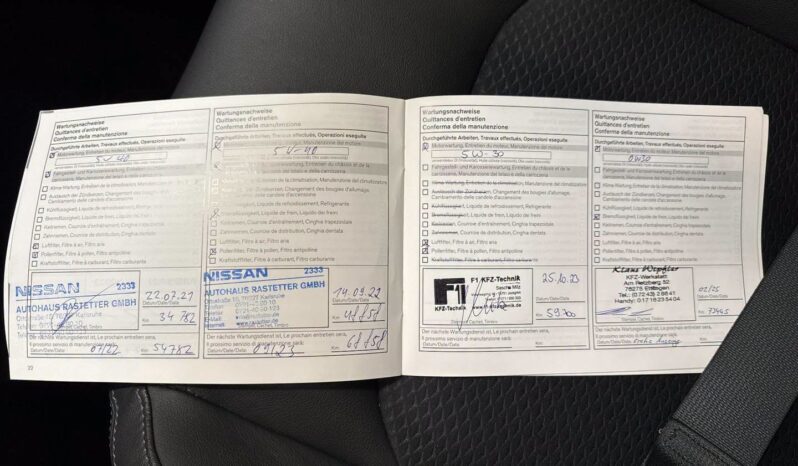 Wartungsnachweise
Quittances d'entretien
Conferma della manutenzione
Durchgeführte Arbeiten, Travaux effectués, Operazioni eseguite
Motorwartung, Entretien du moteur, Manutenzione del motore
5W-40
Fahrgestell- und Karosseriewartung, Entretien du châssis et de la
carrosserie, Manutenzione del telaio e della carrozzeria
Klima-Wartung, Entretien de la climatisation, Manutenzione del climatizzatore
Austausch der Zündkerzen, Changement des bougies d'allumage,
Cambiamento delle candele d'accensione
Kühlflüssigkeit, Liquide de refroidissement, Refrigerante
Bremsflüssigkeit, Liquide de frein, Liquido di freni
Keilriemen, Courroie d'entraînement, Cinghia trapezoidale
Zahnriemen, Courroie d'entraînement, Cinghia dentata
Luftfilter, Filtre à air, Filtro aria
Pollenfilter, Filtre à pollen, Filtro antipolline
Kraftstofffilter, Filtre à carburant, Filtro carburante
NISSAN 2333
AUTOHAUS RASTETTER GMBH
22.07.21
Datum/Date/Data
34782
Km
Stempel, Cachet, Timbro
Der nächste Wartungsdienst ist, Le prochain entretien sera,
Il prossimo servizio di manutenzione sarà:
07/22
54782
Datum/Date/Data
Km
22
Wartungsnachweise
Quittances d'entretien
Conferma della manutenzione
Durchgeführte Arbeiten, Travaux effectués, Operazioni eseguite
5W-40
Bremsflüssigkeit, Liquide de frein, Liquido di freni
Keilriemen, Courroie d'entraînement, Cinghia trapezoidale
Zahnriemen, Courroie d'entraînement, Cinghia dentata
Luftfilter, Filtre à air, Filtro aria
Pollenfilter, Filtre à pollen, Filtro antipolline
Kraftstofffilter, Filtre à carburant, Filtro carburante
NISSAN 2333
AUTOHAUS RASTETTER GMBH
76127 Karlsruhe
Datum/Date/Data
Km
Stempel, Cachet, Timbro
Der nächste Wartungsdienst ist, Le prochain entretien sera,
Il prossimo servizio di manutenzione sarà:
Datum/Date/Data
Km
Wartungsnachweise
Quittances d'entretien
Conferma della manutenzione
Durchgeführte Arbeiten, Travaux effectués, Operazioni eseguite
Motorwartung, Entretien du moteur, Manutenzione del motore
5W-30
Fahrgestell- und Karosseriewartung, Entretien du châssis et de la
carrosserie, Manutenzione del telaio e della carrozzeria
Klima-Wartung, Entretien de la climatisation, Manutenzione del climatizzatore
Austausch der Zündkerzen, Changement des bougies d'allumage,
Cambiamento delle candele d'accensione
Kühlflüssigkeit, Liquide de refroidissement, Refrigerante
Bremsflüssigkeit, Liquide de frein, Liquido di freni
Keilriemen, Courroie d'entraînement, Cinghia trapezoidale
Zahnriemen, Courroie d'entraînement, Cinghia dentata
Luftfilter, Filtre à air, Filtro aria
Pollenfilter, Filtre à pollen, Filtro antipolline
Kraftstofffilter, Filtre à carburant, Filtro carburante
F1 F1 KFZ-Technik
KFZ-Technik
25.10.23
Datum/Date/Data
Km
Stempel, Cachet, Timbro
Der nächste Wartungsdienst ist, Le prochain entretien sera,
Il prossimo servizio di manutenzione sarà:
Datum/Date/Data
Km
Wartungsnachweise
Quittances d'entretien
Conferma della manutenzione
Durchgeführte Arbeiten, Travaux effectués, Operazioni eseguite
Motorwartung, Entretien du moteur, Manutenzione del motore
0W30
Fahrgestell- und Karosseriewartung, Entretien du châssis et de la
carrosserie, Manutenzione del telaio e della carrozzeria
Klima-Wartung, Entretien de la climatisation, Manutenzione del climatizzatore
Austausch der Zündkerzen, Changement des bougies d'allumage,
Cambiamento delle candele d'accensione
Kühlflüssigkeit, Liquide de refroidissement, Refrigerante
Bremsflüssigkeit, Liquide de frein, Liquido di freni
Keilriemen, Courroie d'entraînement, Cinghia trapezoidale
Zahnriemen, Courroie d'entraînement, Cinghia dentata
Luftfilter, Filtre à air, Filtro aria
Pollenfilter, Filtre à pollen, Filtro antipolline
Kraftstofffilter, Filtre à carburant, Filtro carburante
Klaus
KFZ-Werkstatt
Am Retzberg 52
76275 Ettlingen
Datum/Date/Data
Km
Stempel, Cachet, Timbro
Der nächste Wartungsdienst ist, Le prochain entretien sera,
Il prossimo servizio di manutenzione sarà:
Datum/Date/Data
Km